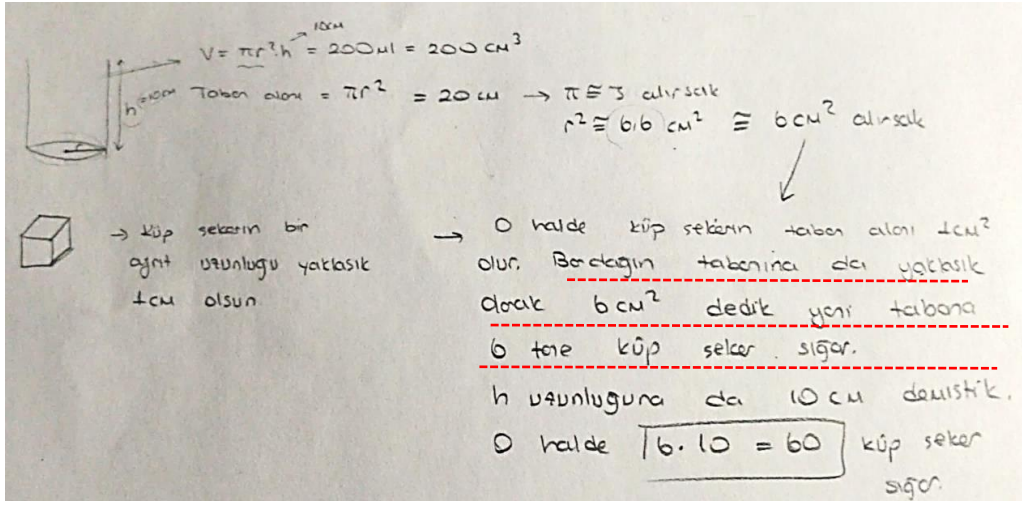 10cm
V = πr².h = 200ml = 200 cm³
h=10cm
Taban alanı = πr² = 20 cm → π ≅ 3 alırsak
r² ≅ 6,6 cm² ≅ 6 cm² alırsak
→ Küp şekerin bir
ayrıt uzunluğu yaklaşık
1cm olsun
→ O halde küp şekerin taban alanı 1cm²
olur. Bardağın tabanına da yaklaşık
olarak 6 cm² dedik yani tabana
6 tane küp şeker sığar.
h uzunluğuna da 10 cm demiştik.
O halde 6.10 = 60 küp şeker
sığar.